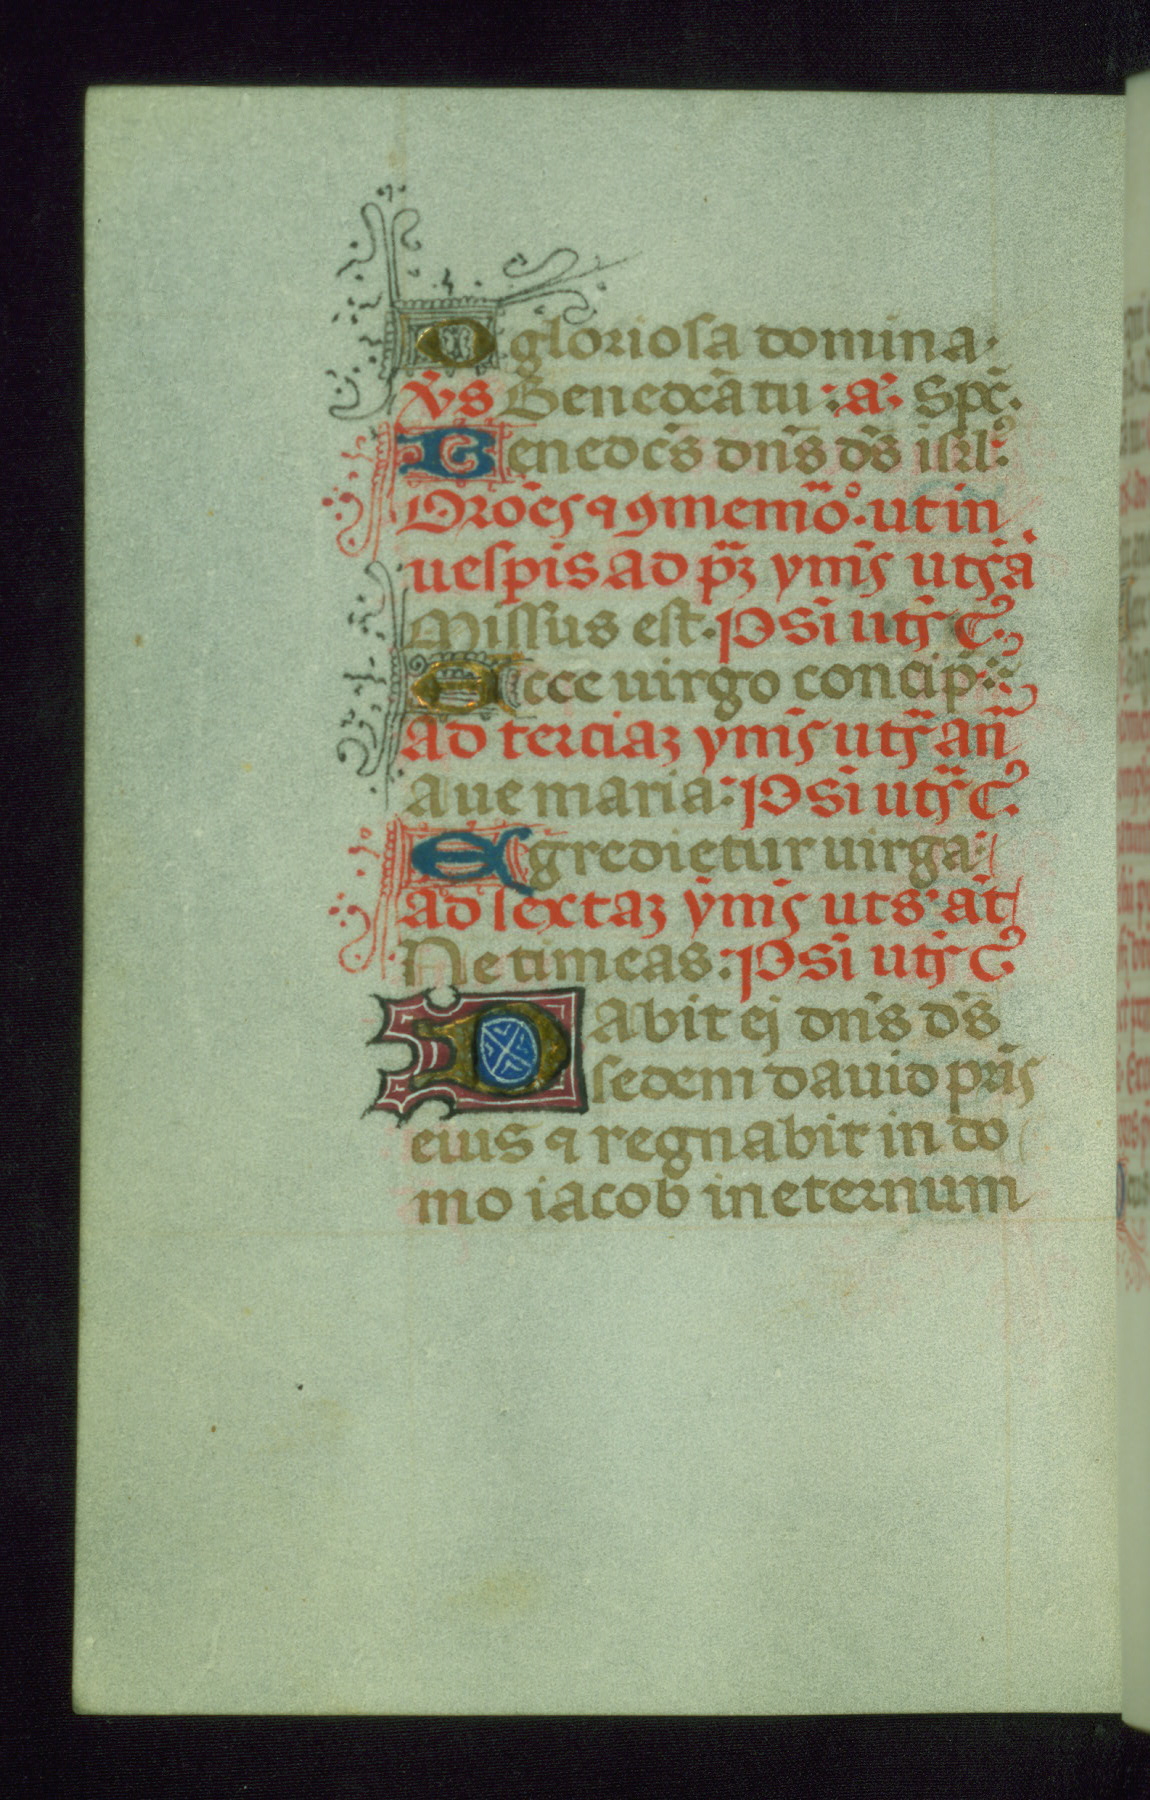 O gloriosa domina.
v̄s Benedc̄a tu : a. Spc̄.
Benedcs̄ dns̄ ds̄ isrl̄.
Oroēs ꝯmemō. ut in
uesp̄is. ad p̄ꝫ ym̄s utsā
Missus est. psī uts̄ c̄.
Ecce uirgo concip̄
Ad terciaꝫ ym̄s uts̄ an̄
aue maria. psī uts̄ c̄.
Egredietur uirga.
ad sextaꝫ ym̄s uts. at̄
Ne timeas. psī uts̄ c̄
Dabit ei dns̄ ds̄
sedem dauid prīs
eius ⁊ regnabit in do
mo iacob in eternum